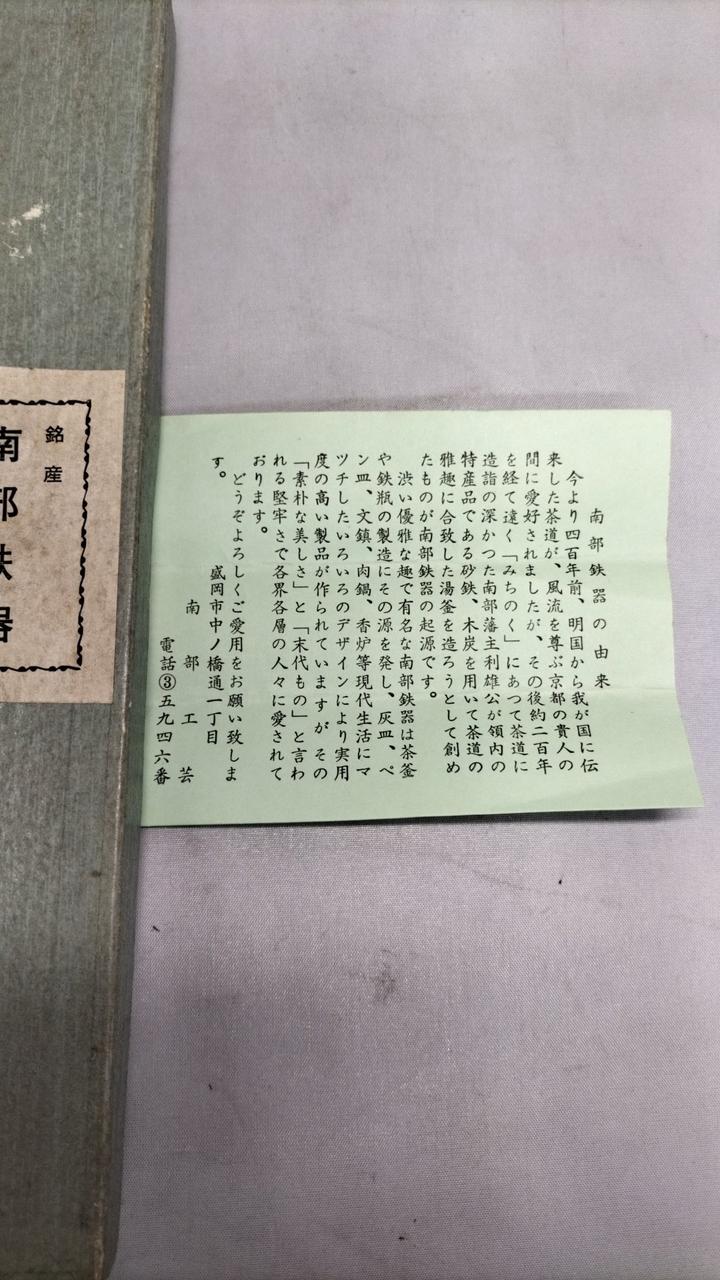 南部鉄器の由来
今より四百年前、明国から我が国に伝
来した茶道が、風流を尊ぶ京都の貴人の
間に愛好されましたが、その後約二百年
を経て遠く「みちのく」にあつて茶道に
造詣の深かつた南部藩主利雄公が領内の
特産品である砂鉄、木炭を用いて茶道の
雅趣に合致した湯釜を造ろうとして創め
たものが南部鉄器の起源です。
渋い優雅な趣で有名な南部鉄器は茶釜
や鉄瓶の製造にその源を発し、灰皿、ペ
ン皿、文鎮、肉鍋、香炉等現代生活にマ
ツチしたいろいろのデザインにより実用
度の高い製品が作られていますが その
「素朴な美しさ」と「末代もの」と言わ
れる堅牢さで各界各層の人々に愛されて
おります。
どうぞよろしくご愛用をお願い致しま
す。
盛岡市中ノ橋通一丁目
南部工芸
電話③五九四六番
銘産
南部鉄器